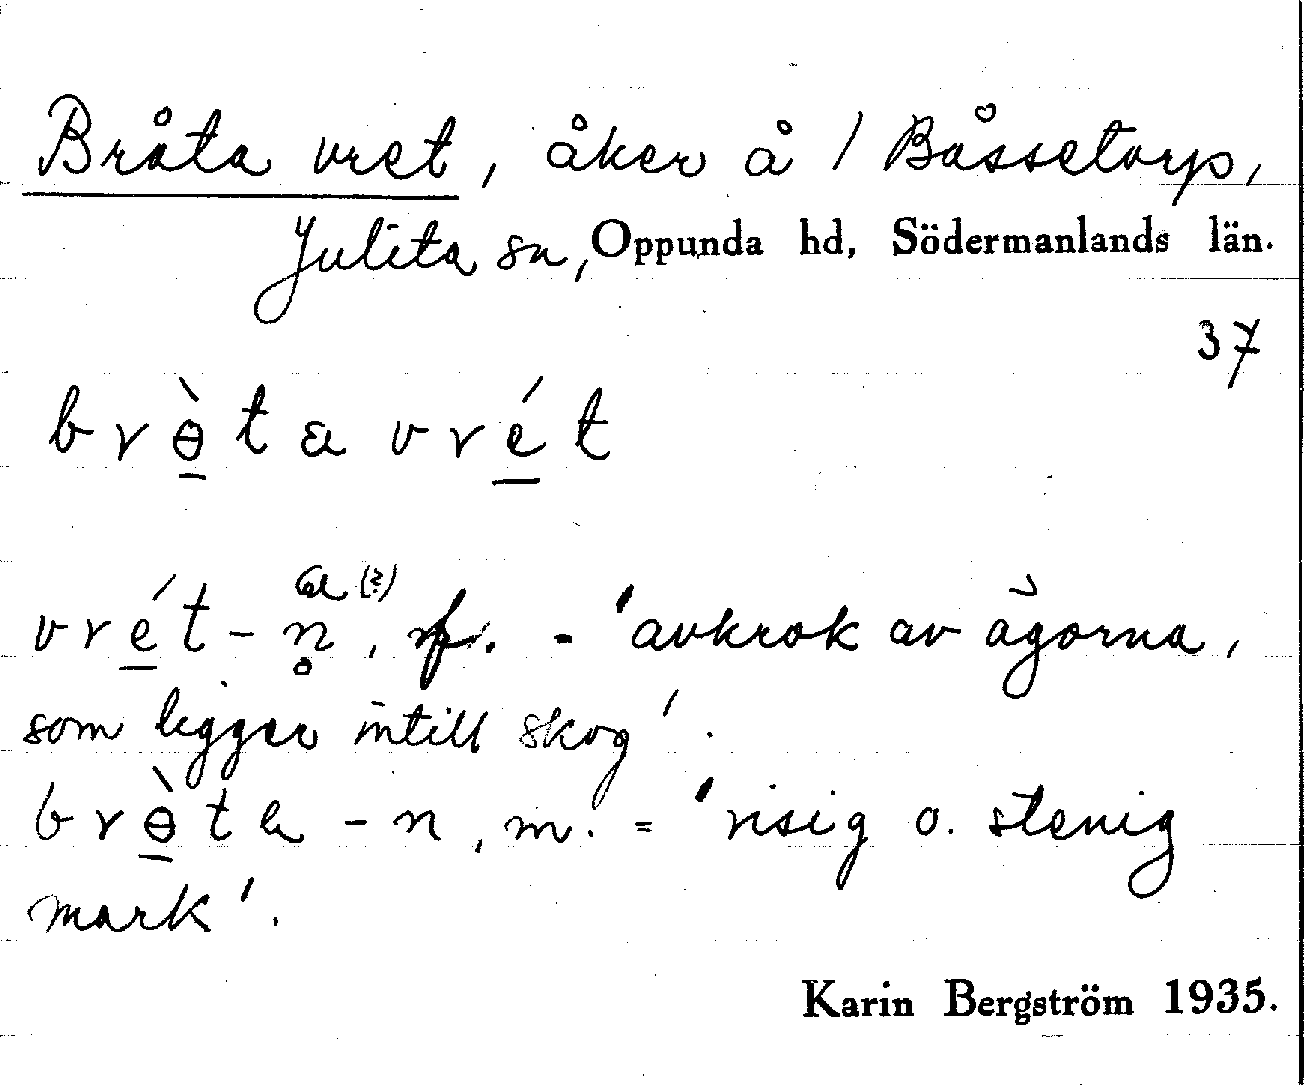 Bråta vret, åker å / Båssetorp,
Julita sn, Oppunda hd, Södermanlands län.
37
brɵ̀ta vrét
a (?)
vrét-n̥, f. - 'avkrok av ägorna,
som ligger intill skog'.
brɵ̀ta -n, m. = 'risig o. stenig
mark'.
Karin Bergström 1935.